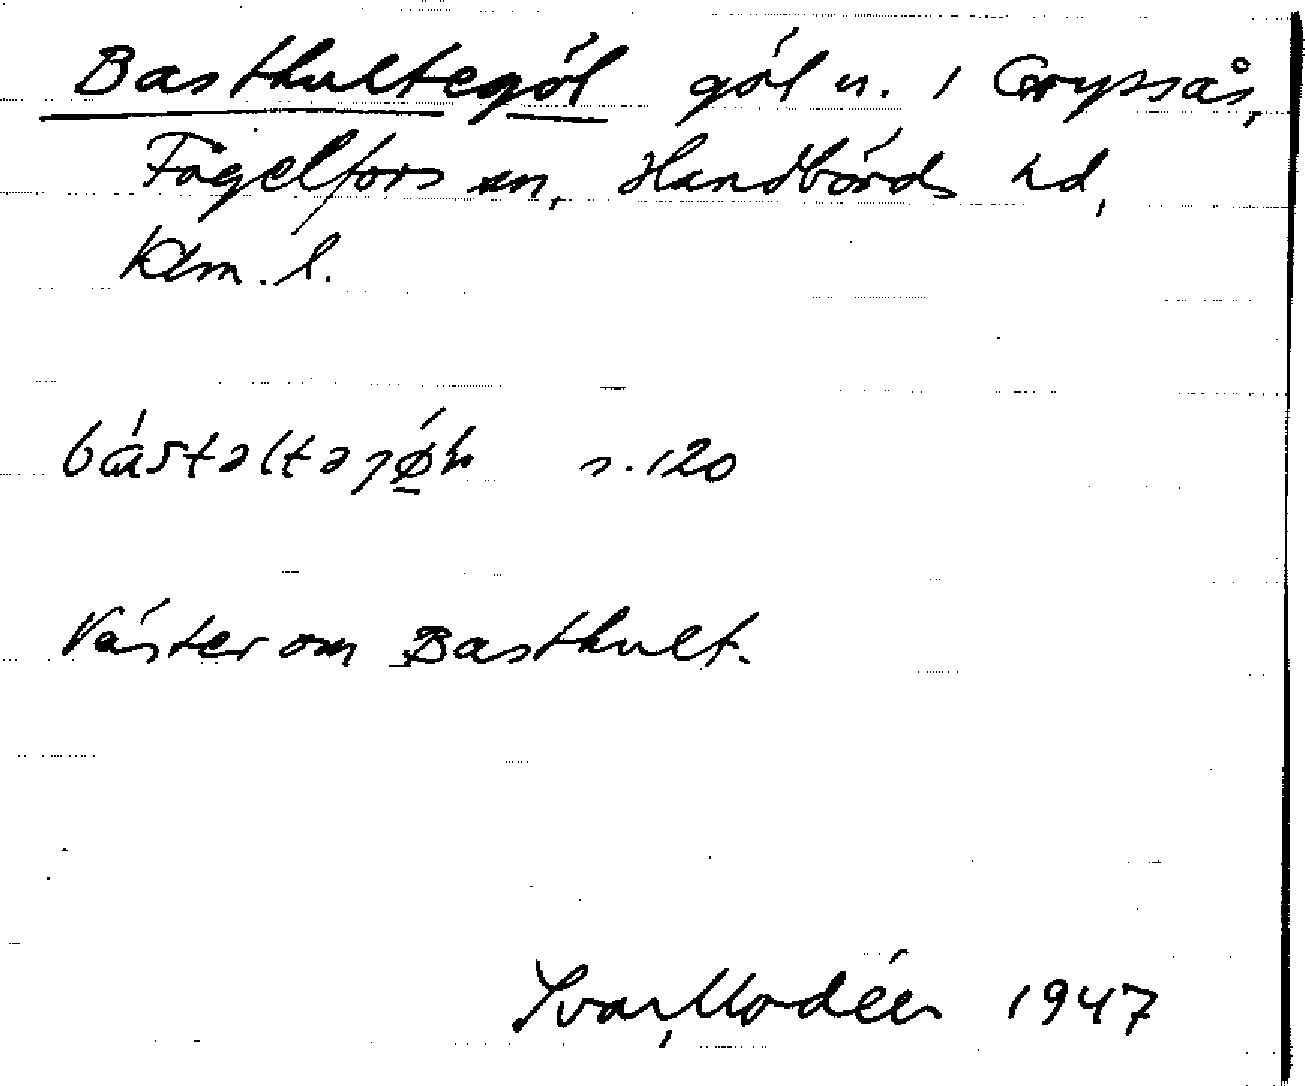 Basthultegöl göl n. i Grypsås,
Fågelfors sn, Handbörds hd,
Klm. l.
s. 120
Väster om Basthult.
Ivar Modéer 1947